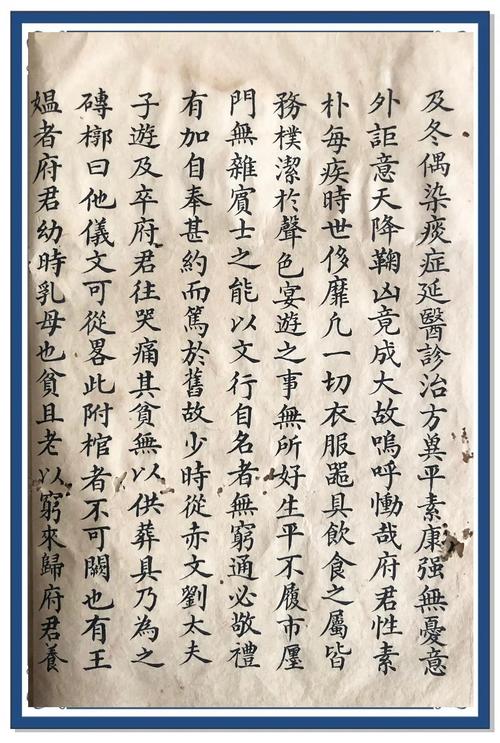 及冬偶染痰症延醫診治方兾平素康强無憂意
外詎意天降鞠凶竟成大故嗚呼慟哉府君性素
朴每疾時世侈靡凢一切衣服噐具飲食之屬皆
務樸潔扵聲色宴遊之事無所好生平不履市廛
門無雜賓士之能以文行自名者無窮通必敬禮
有加自奉甚約而篤於舊故少時從赤文劉太夫
子遊及卒府君往哭痛其貧無以供葬具乃為之
磚槨曰他儀文可從畧此附棺者不可闕也有王
媼者府君幼時乳母也貧且老以窮來歸府君養